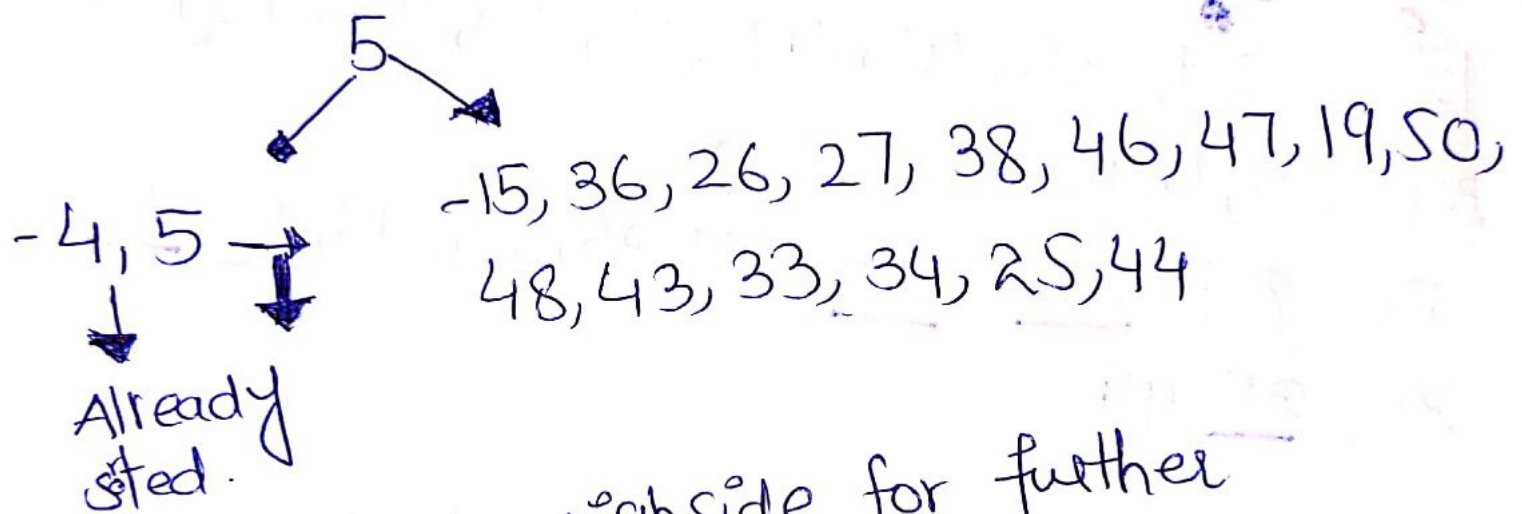 5
-15, 36, 26, 27, 38, 46, 47, 19, 50,
-4, 5
48, 43, 33, 34, 25, 44
Already
sorted.
side for further